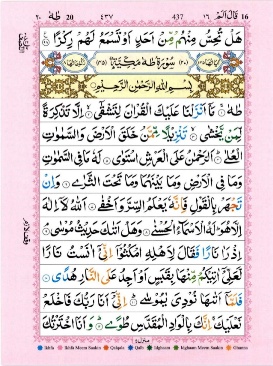 ٢٠ طٰهٰ 20 ٤٣٧ 437 قَالَ اَلَمْ ١٦ 16
هَلْ تُحِسُّ مِنْهُمْ مِّنْ اَحَدٍ اَوْ تَسْمَعُ لَهُمْ رِكْزًا
سُوْرَةُ طٰهٰ مَكِّيَّةٌ
بِسْمِ اللّٰهِ الرَّحْمٰنِ الرَّحِيْمِ
طٰهٰ ۚ مَآ اَنْزَلْنَا عَلَيْكَ الْقُرْاٰنَ لِتَشْقٰٓى ۙ اِلَّا تَذْكِرَةً
لِّمَنْ يَّخْشٰى ۙ تَنْزِيْلًا مِّمَّنْ خَلَقَ الْاَرْضَ وَالسَّمٰوٰتِ
الْعُلٰى ؕ اَلرَّحْمٰنُ عَلَى الْعَرْشِ اسْتَوٰى ۞ لَهٗ مَا فِى السَّمٰوٰتِ
وَمَا فِى الْاَرْضِ وَمَا بَيْنَهُمَا وَمَا تَحْتَ الثَّرٰى ۞ وَاِنْ
تَجْهَرْ بِالْقَوْلِ فَاِنَّهٗ يَعْلَمُ السِّرَّ وَاَخْفٰى ۞ اَللّٰهُ لَآ اِلٰهَ اِلَّا
هُوَ ؕ لَهُ الْاَسْمَآءُ الْحُسْنٰى ۞ وَهَلْ اَتٰىكَ حَدِيْثُ مُوْسٰى ۘ
اِذْ رَاٰ نَارًا فَقَالَ لِاَهْلِهِ امْكُثُوْٓا اِنِّىْٓ اٰنَسْتُ نَارًا
لَّعَلِّىْٓ اٰتِيْكُمْ مِّنْهَا بِقَبَسٍ اَوْ اَجِدُ عَلَى النَّارِ هُدًى ۞
فَلَمَّآ اَتٰىهَا نُوْدِىَ يٰمُوْسٰى ؕ اِنِّىْٓ اَنَا رَبُّكَ فَاخْلَعْ
نَعْلَيْكَ ۚ اِنَّكَ بِالْوَادِ الْمُقَدَّسِ طُوًى ؕ وَاَنَا اخْتَرْتُكَ
Ikhfa Ikhfa Meem Saakin Qalqala Qalb Idghaam Idghaam Meem Saakin Ghunna